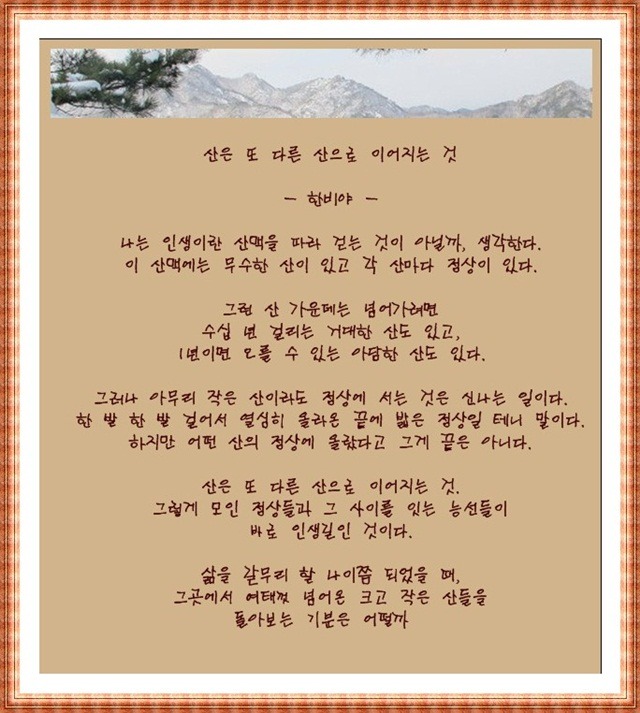 산은 또 다른 산으로 이어지는 것
- 한비야 -
나는 인생이란 산맥을 따라 걷는 것이 아닐까, 생각한다.
이 산맥에는 무수한 산이 있고 각 산마다 정상이 있다.
그런 산 가운데는 넘어가려면
수십 년 걸리는 거대한 산도 있고,
1년이면 오를 수 있는 아담한 산도 있다.
그러나 아무리 작은 산이라도 정상에 서는 것은 신나는 일이다.
한 발 한 발 걸어서 열심히 올라온 끝에 밟은 정상일 테니 말이다.
하지만 어떤 산의 정상에 올랐다고 그게 끝은 아니다.
산은 또 다른 산으로 이어지는 것.
그렇게 모인 정상들과 그 사이를 잇는 능선들이
바로 인생길인 것이다.
삶을 갈무리 할 나이쯤 되었을 때,
그곳에서 여태껏 넘어온 크고 작은 산들을
돌아보는 기분은 어떨까